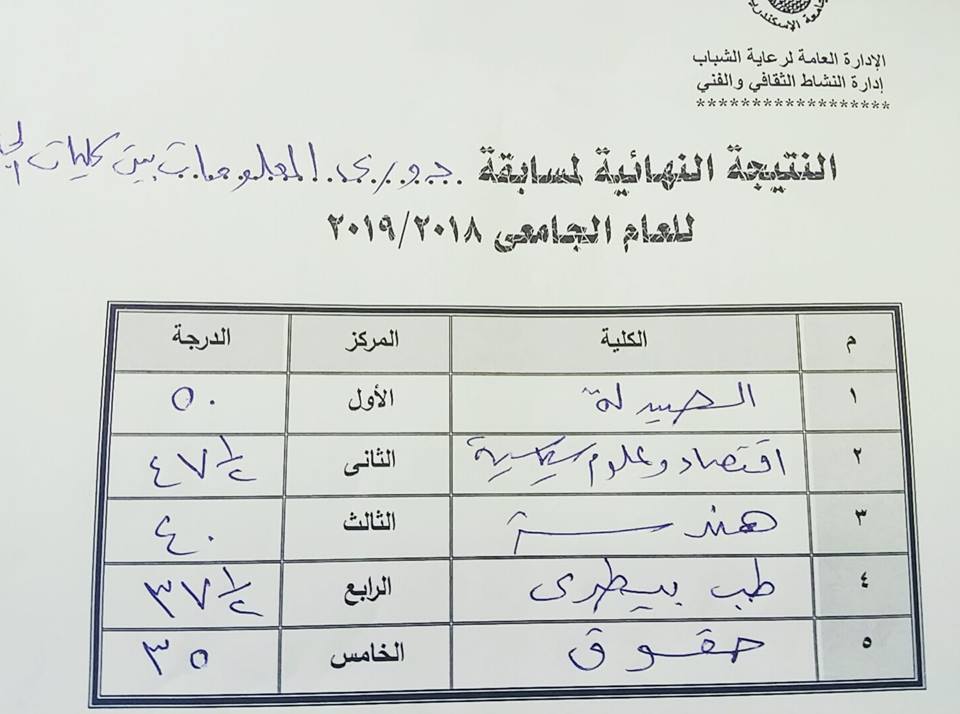 جامعة الإسكندرية
الإدارة العامة لرعاية الشباب
إدارة النشاط الثقافي والفني
******************
النتيجة النهائية لمسابقة دورى المعلومات بين كليات
للعام الجامعى ٢٠١٨/٢٠١٩
م الكلية المركز الدرجة
١ الصيدلة الأول ٥٠
٢ اقتصاد وعلوم سياسية الثانى ٤٧ ½
٣ هندسة الثالث ٤٠
٤ طب بيطرى الرابع ٣٧ ½
٥ حقوق الخامس ٣٥